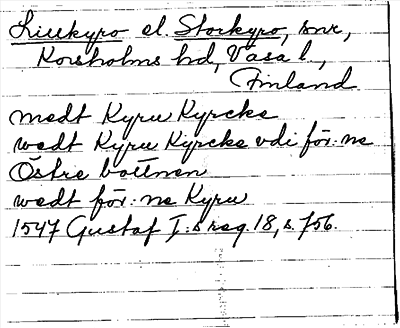 Liukyro el. Storkyro, snr,
Korsholms hd, Vasa l.,
Finland
medt Kyru Kyrcke
wedt Kyru Kyrcke vdi för:ne
Östre bottnen
wedt för:ne Kyru
1547 Gustaf I:s reg. 18, s. 756.